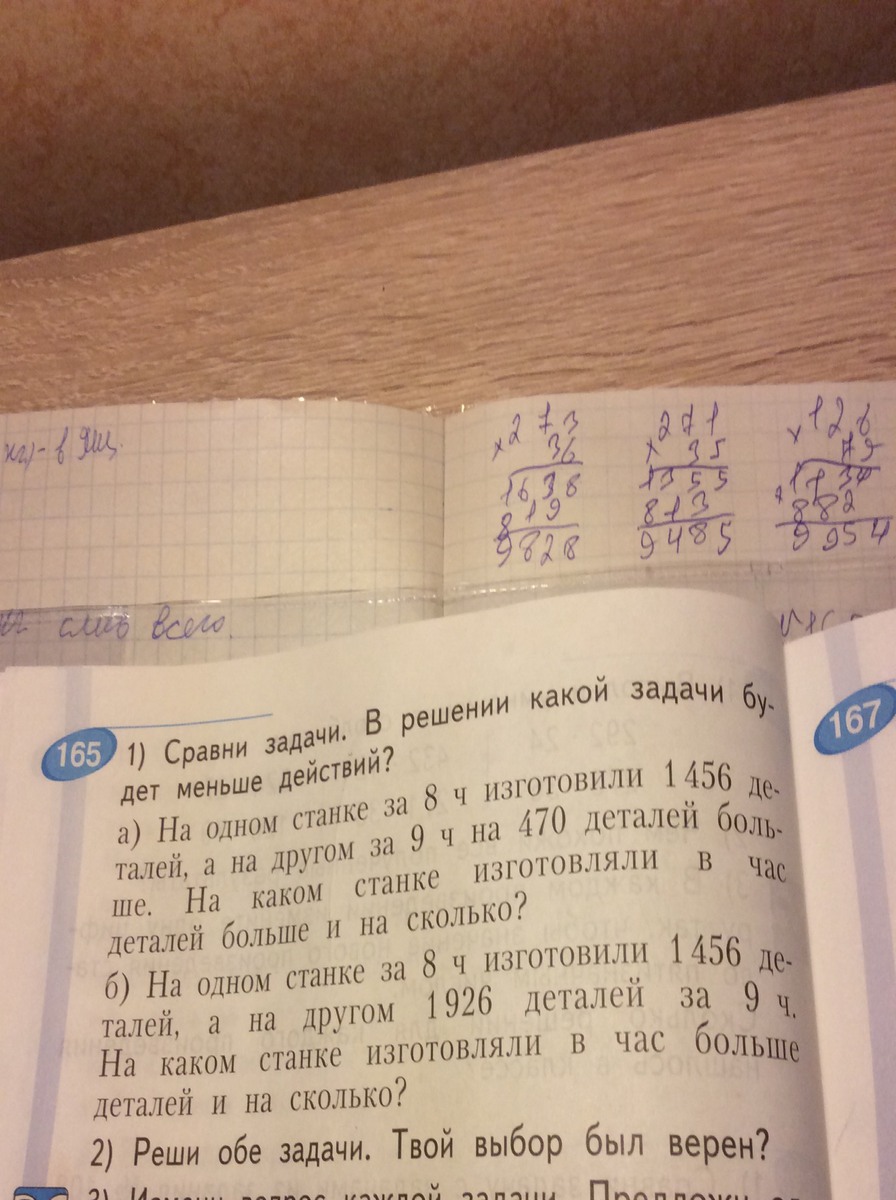 в ящ.
× 273 × 271 × 126
36 35 79
1638 1355 1134
819 813 882
9828 9485 9954
слив всего.
165 1) Сравни задачи. В решении какой задачи бу-
дет меньше действий?
а) На одном станке за 8 ч изготовили 1 456 де-
талей, а на другом за 9 ч на 470 деталей боль-
ше. На каком станке изготовляли в час
деталей больше и на сколько?
б) На одном станке за 8 ч изготовили 1 456 де-
талей, а на другом 1 926 деталей за 9 ч.
На каком станке изготовляли в час больше
деталей и на сколько?
2) Реши обе задачи. Твой выбор был верен?
3) Измени вопрос каждой задачи. Предложи
167